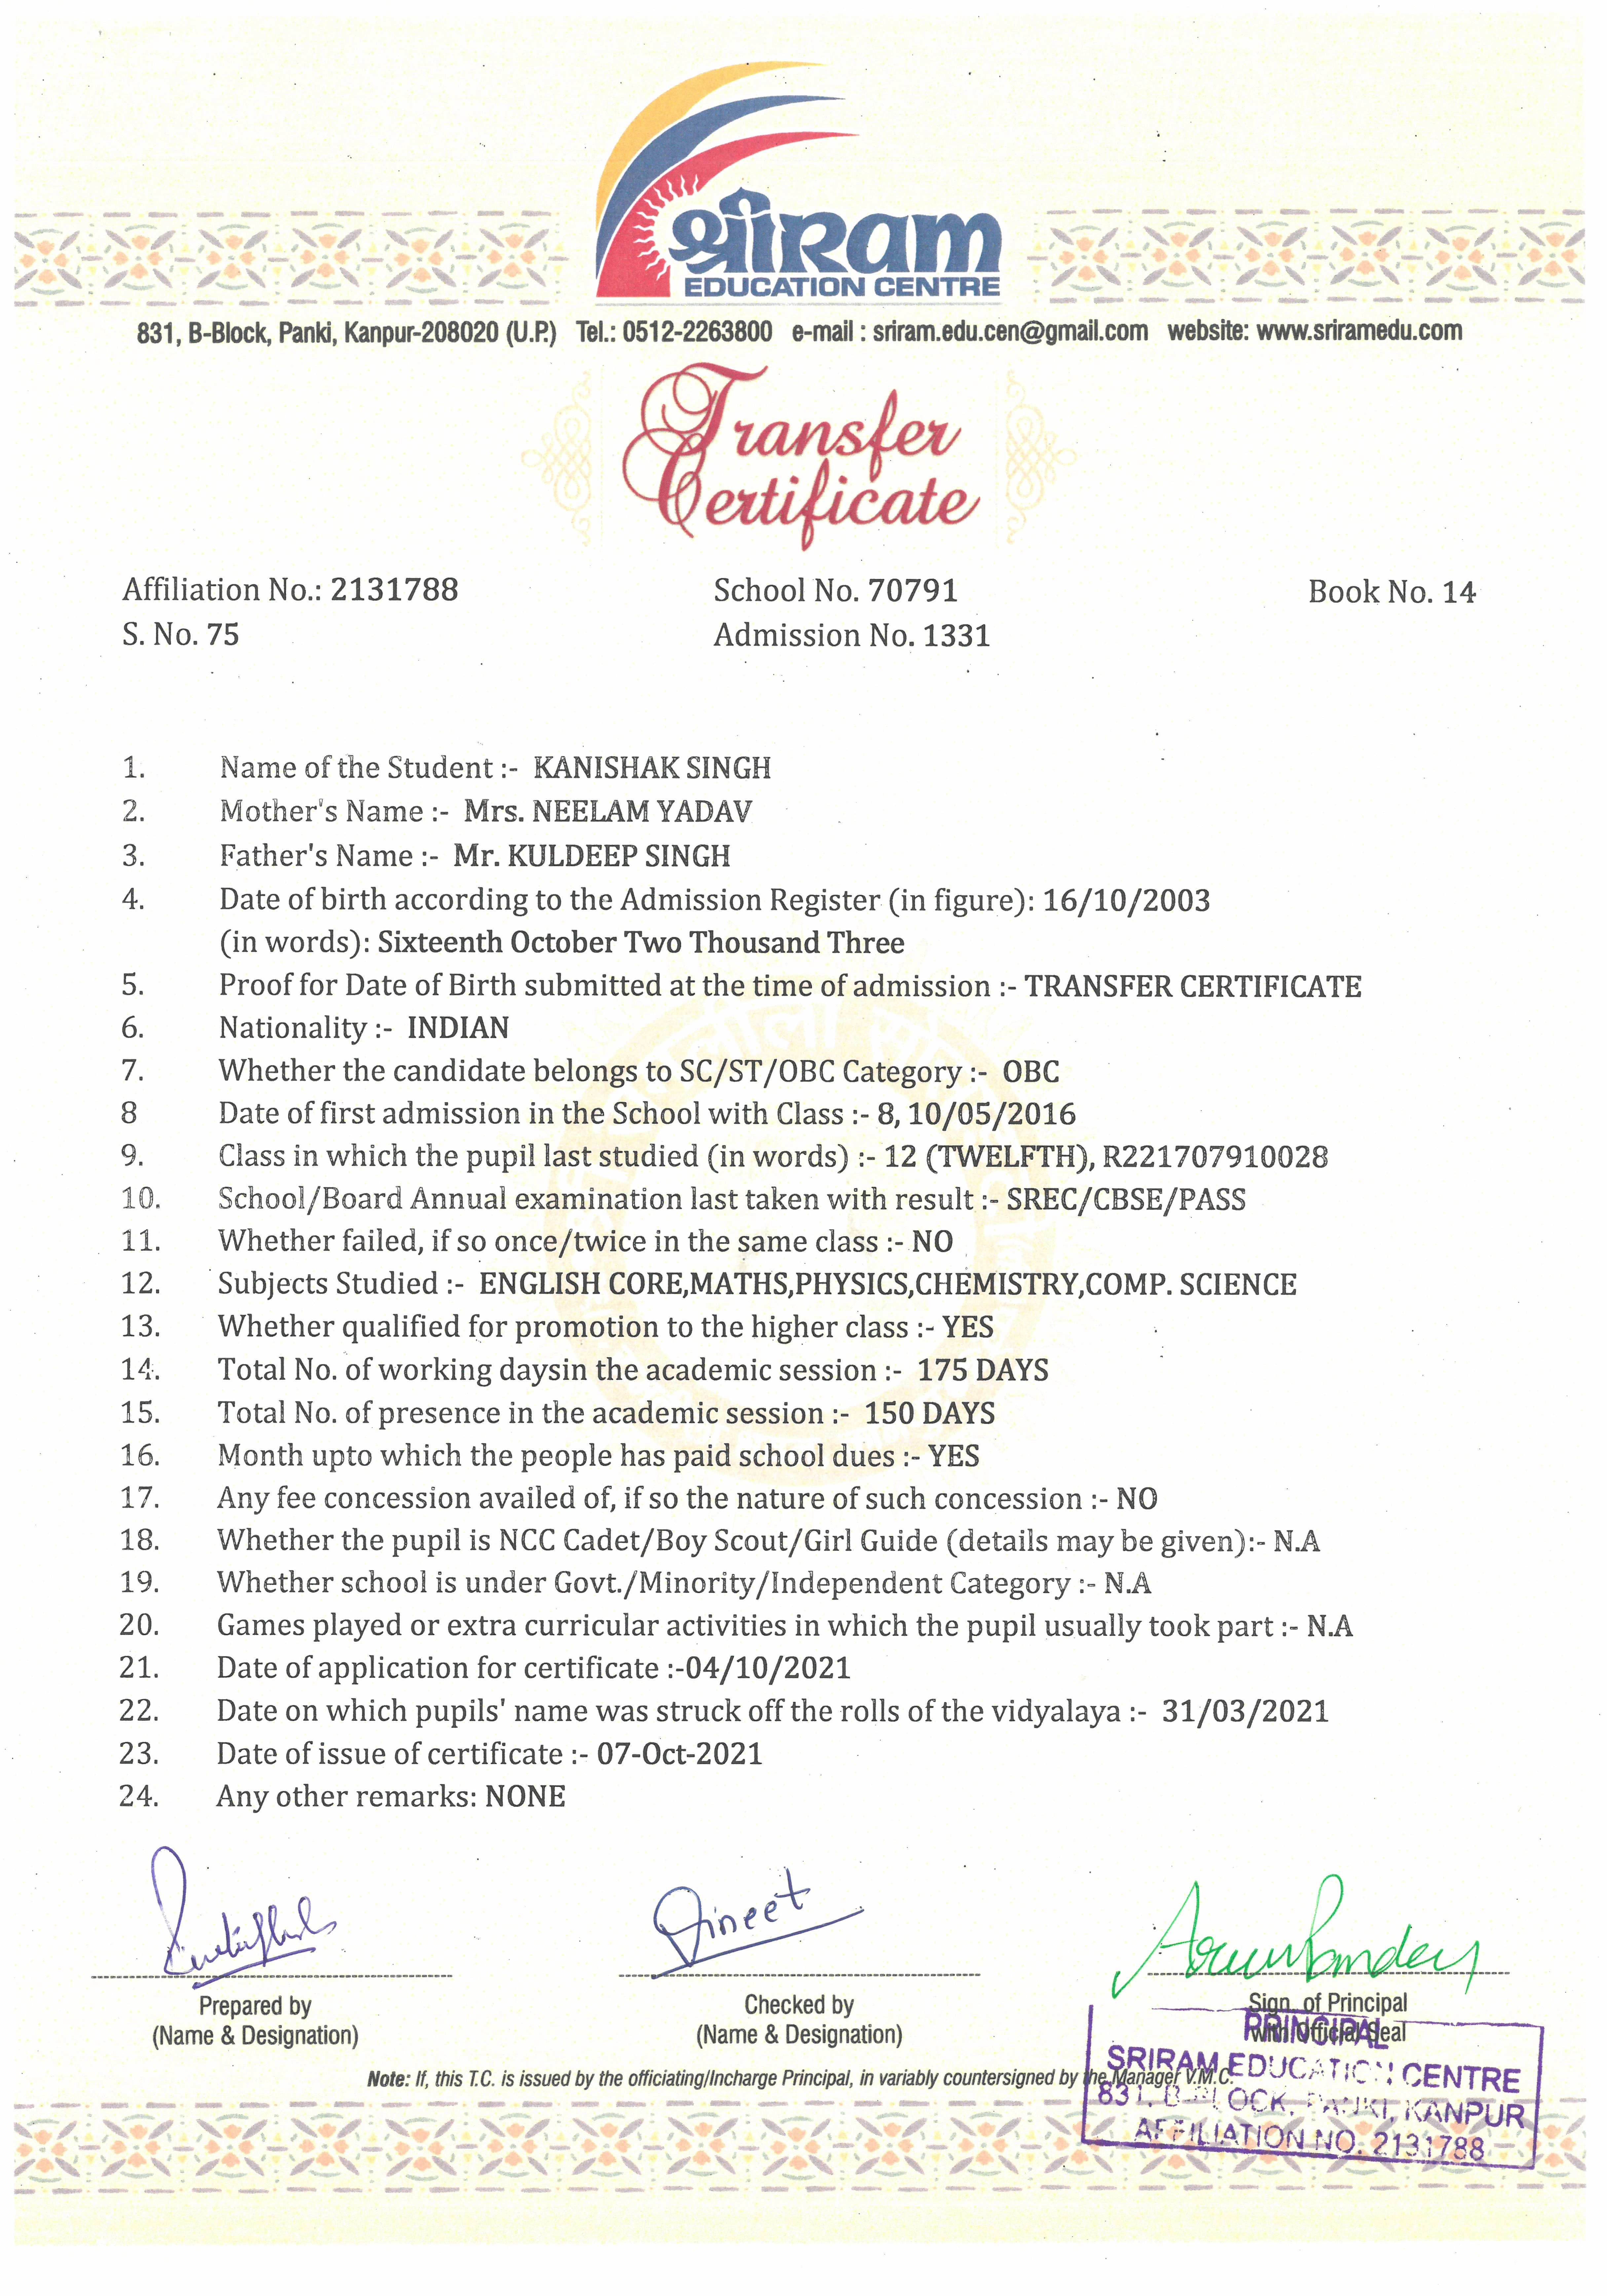 श्रीRam
EDUCATION CENTRE
831, B-Block, Panki, Kanpur-208020 (U.P.) Tel.: 0512-2263800 e-mail : sriram.edu.cen@gmail.com website: www.sriramedu.com
Transfer
Certificate
Affiliation No.: 2131788 School No. 70791 Book No. 14
S. No. 75 Admission No. 1331
1. Name of the Student :- KANISHAK SINGH
2. Mother's Name :- Mrs. NEELAM YADAV
3. Father's Name :- Mr. KULDEEP SINGH
4. Date of birth according to the Admission Register (in figure): 16/10/2003
(in words): Sixteenth October Two Thousand Three
5. Proof for Date of Birth submitted at the time of admission :- TRANSFER CERTIFICATE
6. Nationality :- INDIAN
7. Whether the candidate belongs to SC/ST/OBC Category :- OBC
8 Date of first admission in the School with Class :- 8, 10/05/2016
9. Class in which the pupil last studied (in words) :- 12 (TWELFTH), R221707910028
10. School/Board Annual examination last taken with result :- SREC/CBSE/PASS
11. Whether failed, if so once/twice in the same class :- NO
12. Subjects Studied :- ENGLISH CORE,MATHS,PHYSICS,CHEMISTRY,COMP. SCIENCE
13. Whether qualified for promotion to the higher class :- YES
14. Total No. of working daysin the academic session :- 175 DAYS
15. Total No. of presence in the academic session :- 150 DAYS
16. Month upto which the people has paid school dues :- YES
17. Any fee concession availed of, if so the nature of such concession :- NO
18. Whether the pupil is NCC Cadet/Boy Scout/Girl Guide (details may be given):- N.A
19. Whether school is under Govt./Minority/Independent Category :- N.A
20. Games played or extra curricular activities in which the pupil usually took part :- N.A
21. Date of application for certificate :-04/10/2021
22. Date on which pupils' name was struck off the rolls of the vidyalaya :- 31/03/2021
23. Date of issue of certificate :- 07-Oct-2021
24. Any other remarks: NONE
Vineet
Prepared by Checked by Sign. of Principal
(Name & Designation) (Name & Designation) with Official Seal
PRINCIPAL
SRIRAM EDUCATION CENTRE
Note: If, this T.C. is issued by the officiating/Incharge Principal, in variably countersigned by the Manager V.M.C.
831, B-BLOCK, PANKI, KANPUR
AFFILIATION NO. 2131788